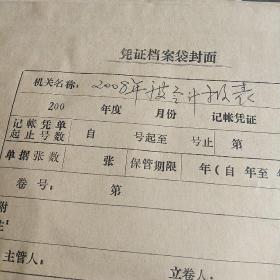 凭证档案袋封面
机关名称：2008年度会计报表
200 年度 月份 记帐凭证
记帐凭单起止号数 自 号起至 号止 第
单据张数 张 保管期限 年（自 年至
卷号： 第
附
注：
主管人： 立卷人：